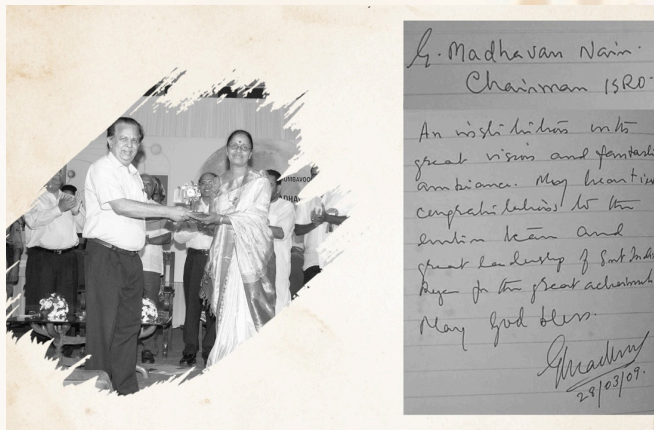 UMBAVOO
ADHA
G. Madhavan Nair.
Chairman ISRO.
An institution with
great vision and fantasti
ambiance. My hearties
congratulations to the
entire team and
great leadership of Smt Indira
for the great achievements
May God bless.
28/03/09.